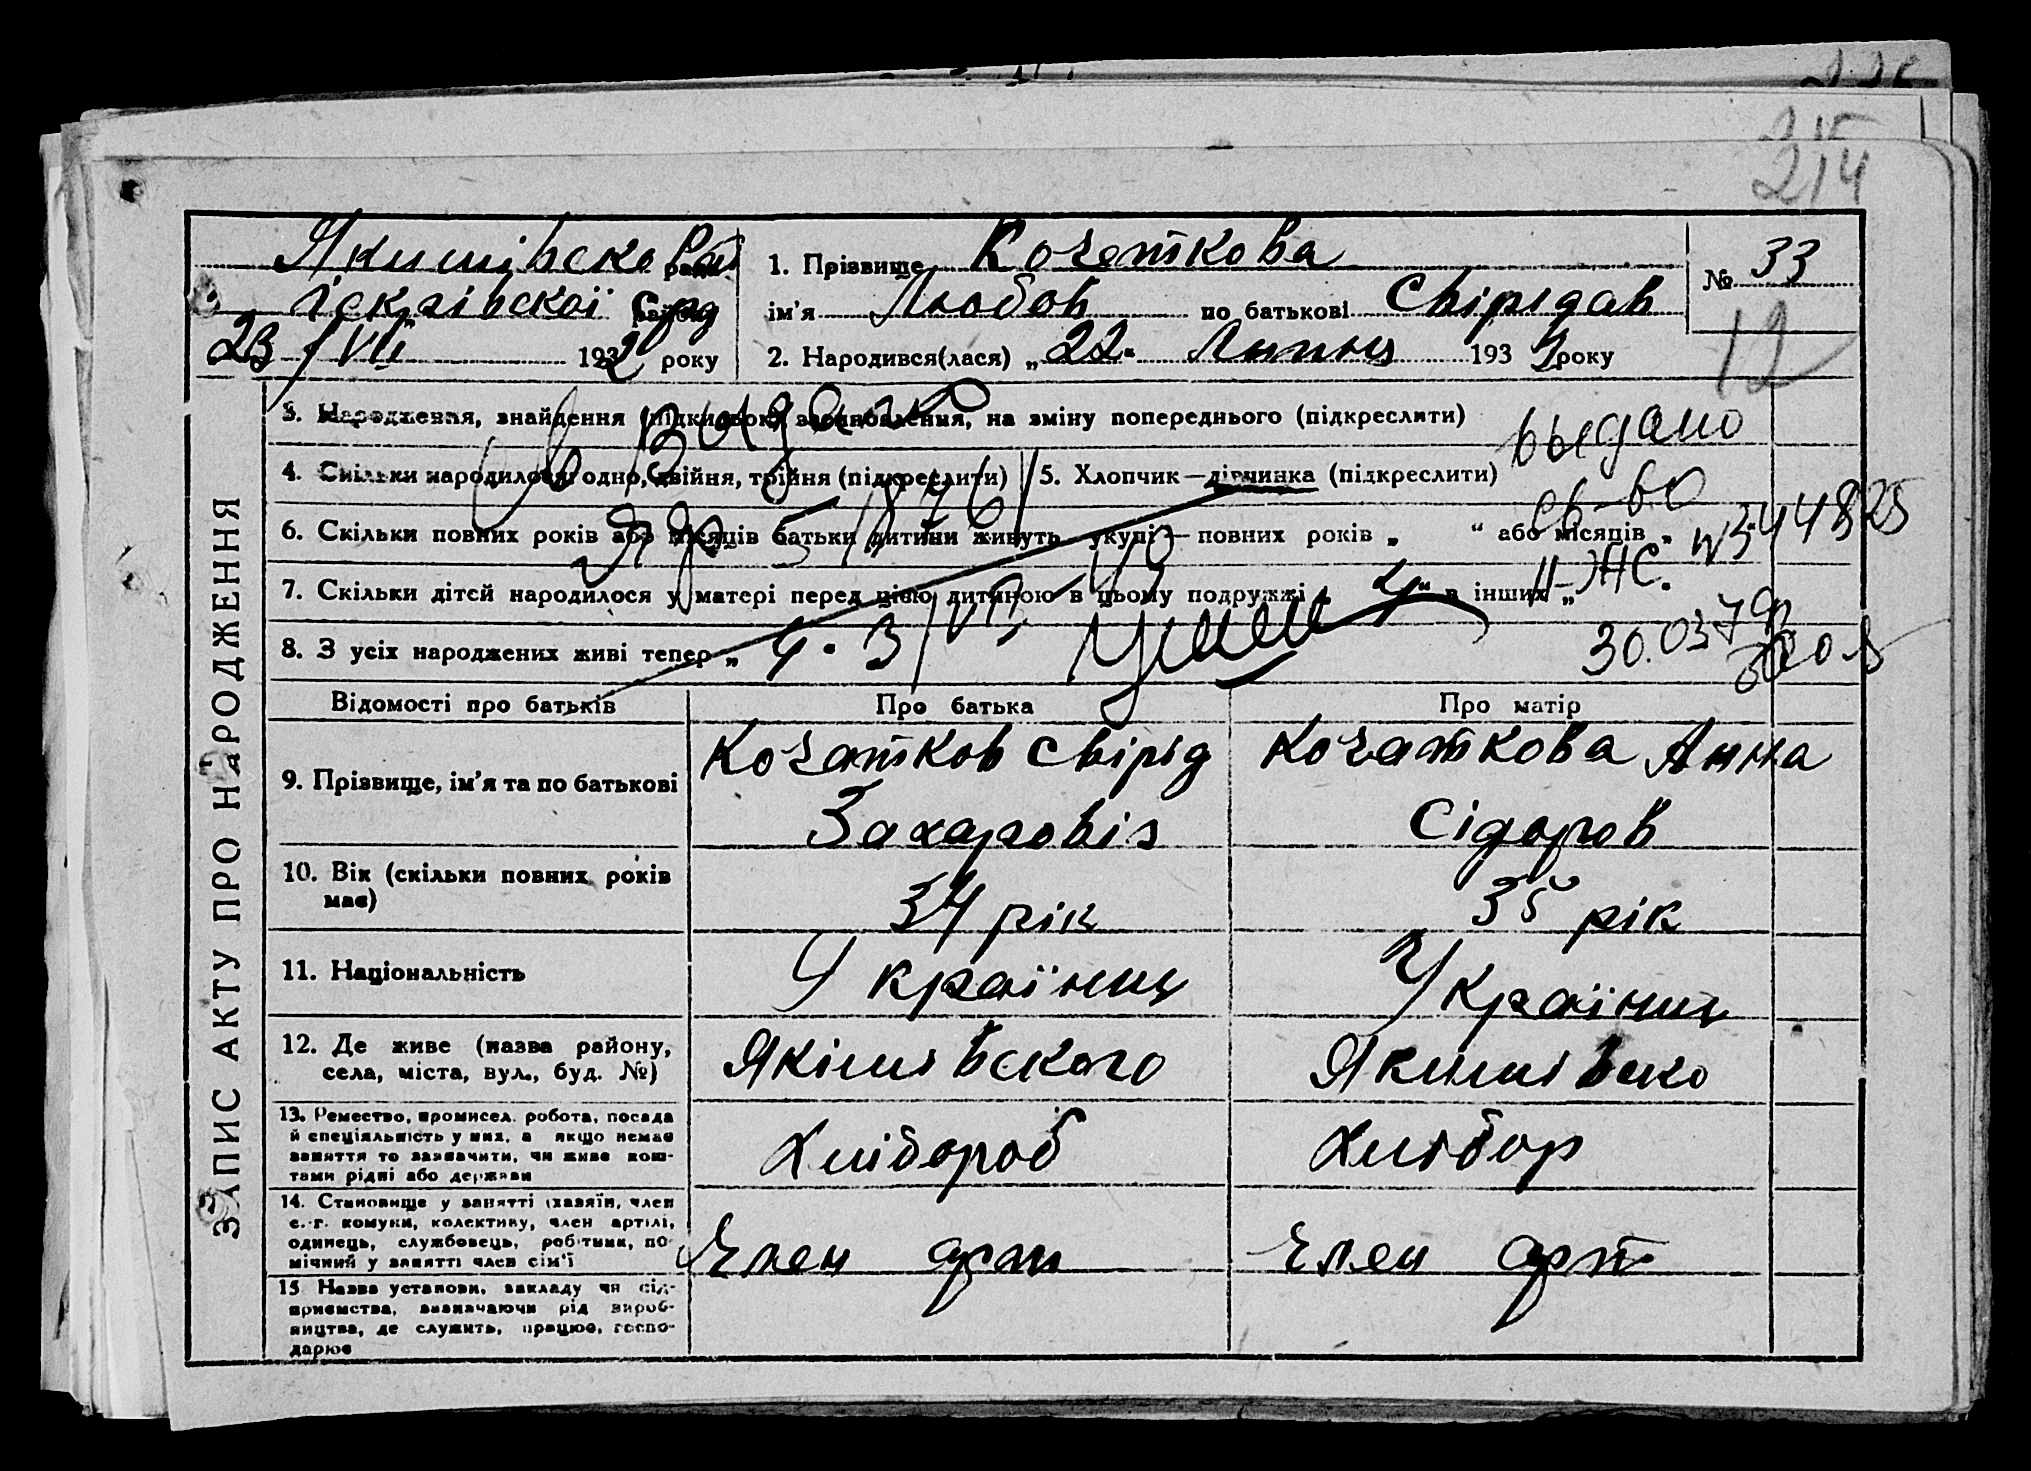 214
Якимівской ради
району
23/VII 1932 року
1. Прізвище Кочеткова
ім'я Любов по батькові Свірідов
2. Народився(лася) „22“ Липиц 1932 року
№ 33
12
3. Народження, знайдення на зміну попереднього (підкреслити)
видано
4. Скільки народилося: одно, двійня, трійня (підкреслити)
5. Хлопчик—дівчинка (підкреслити)
выдано
св-во
6. Скільки повних років або місяців батьки дитини живуть укупі — повних років „ “ або місяців „
№344825
7. Скільки дітей народилося у матері перед цією дитиною в цьому подружжі „4“ в інших „
II-ЖС.
8. З усіх народжених живі тепер „
30.03.79р
ЗАПИС АКТУ ПРО НАРОДЖЕННЯ
Відомості про батьків
Про батька
Про матір
9. Прізвище, ім'я та по батькові
Кочатков Свірід
Захаровіч
Кочаткова Анна
Сідоров
10. Вік (скільки повних років
має)
34 рік
35 рік
11. Національність
Україниц
Україниц
12. Де живе (назва району,
села, міста, вул., буд. №)
Якімівского
Якимівско
13. Ремество, промисел, робота, посада
й спеціяльність у них, а якщо немає
заняття то зазначити, чи живе кош-
тами рідні або держави
Хлібороб
Хлібор
14. Становище у занятті (хазяїн, член
с.-г. комуни, колективу, член артілі,
одинець, службовець, робітник, по-
мічний у занятті член сім'ї
Член арт
Член арт
15 Назва установи, закладу чи під-
приємства, визначаючи рід вироб-
ництва, де служить, працює, госпо-
дарює